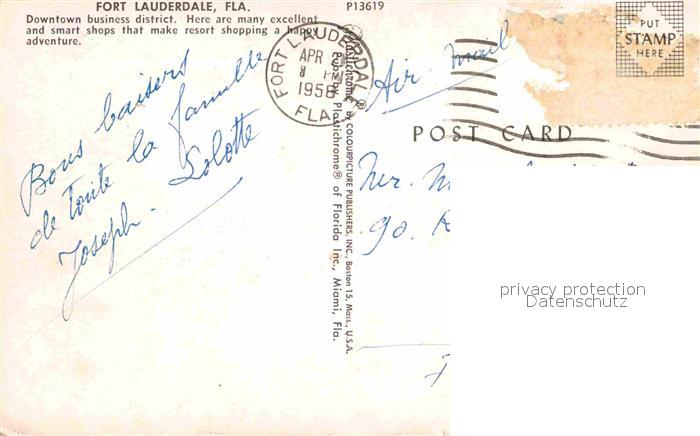 FORT LAUDERDALE, FLA.
Downtown business district. Here are many excellent
and smart shops that make resort shopping a happy
adventure.
P13619
PUT
STAMP
HERE
FORT LAUDERDALE
APR
8
1956
FLA.
Air mail
POST CARD
Bons baisers
de toute la famille
Joseph - Lolotte
Plastichrome® by COLOURPICTURE PUBLISHERS, INC., Boston 15, Mass., U.S.A.
Pub. by Plastichrome® of Florida Inc., Miami, Fla.
privacy protection
Datenschutz